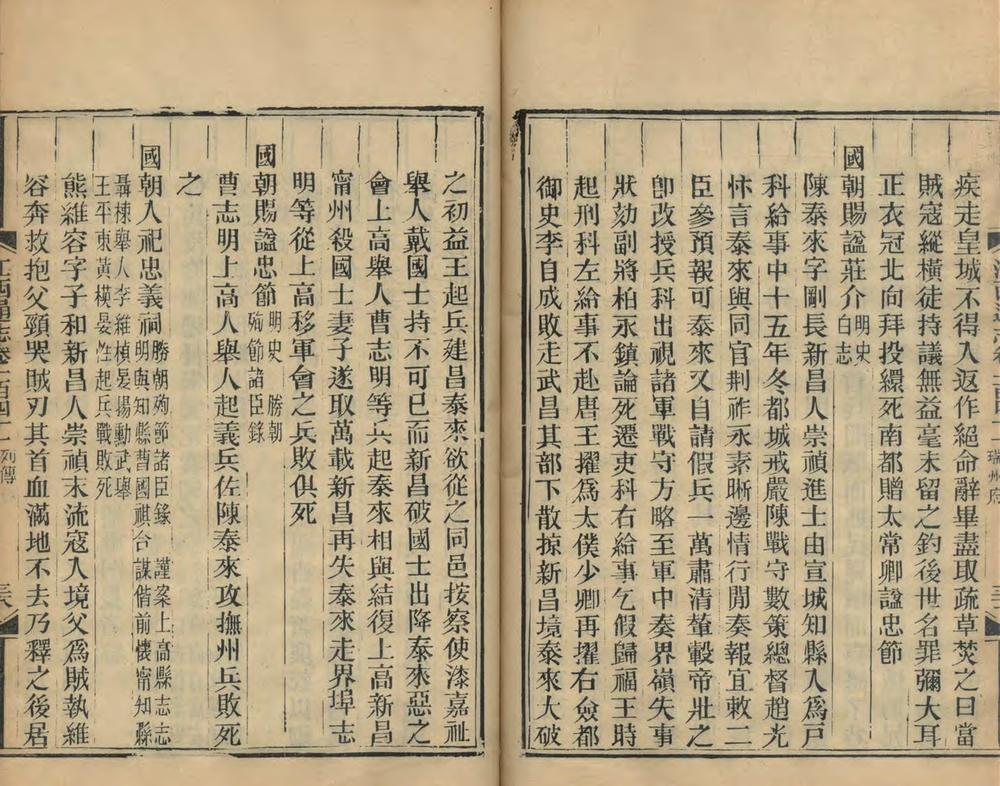 疾走皇城不得入返作絕命辭畢盡取疏草焚之曰當
賊寇縱橫徒持議無益毫末留之釣後世名罪彌大耳
正衣冠北向拜投繯死南都贈太常卿諡忠節
國朝賜諡莊介明史
白志
陳泰來字剛長新昌人崇禎進士由宣城知縣入爲戶
科給事中十五年冬都城戒嚴陳戰守數策總督趙光
忭言泰來與同官荆祚永素晰邊情行閒奏報宜敕二
臣參預報可泰來又自請假兵一萬肅清輦轂帝壯之
卽改授兵科出視諸軍戰守方略至軍中奏界嶺失事
狀劾副將柏永鎮論死遷吏科右給事乞假歸福王時
起刑科左給事不赴唐王擢爲太僕少卿再擢右僉都
御史李自成敗走武昌其部下散掠新昌境泰來大破
之初益王起兵建昌泰來欲從之同邑按察使漆嘉祉
舉人戴國士持不可已而新昌破國士出降泰來惡之
會上高舉人曹志明等兵起泰來相與結復上高新昌
甯州殺國士妻子遂取萬載新昌再失泰來走界埠志
明等從上高移軍會之兵敗俱死
國朝賜諡忠節明史 勝朝
殉節諸臣錄
曹志明上高人舉人起義兵佐陳泰來攻撫州兵敗死
之
國朝入祀忠義祠勝朝殉節諸臣錄 謹案上高縣志志
明與知縣曹國祺合謀偕前懷甯知縣
聶棟舉人李維楨晏揚勳武舉
王平東黃模晏性起兵戰敗死
熊維容字子和新昌人崇禎末流寇入境父爲賊執維
容奔救抱父頸哭賊刃其首血滿地不去乃釋之後居
江西通志卷一百四十一 列傳